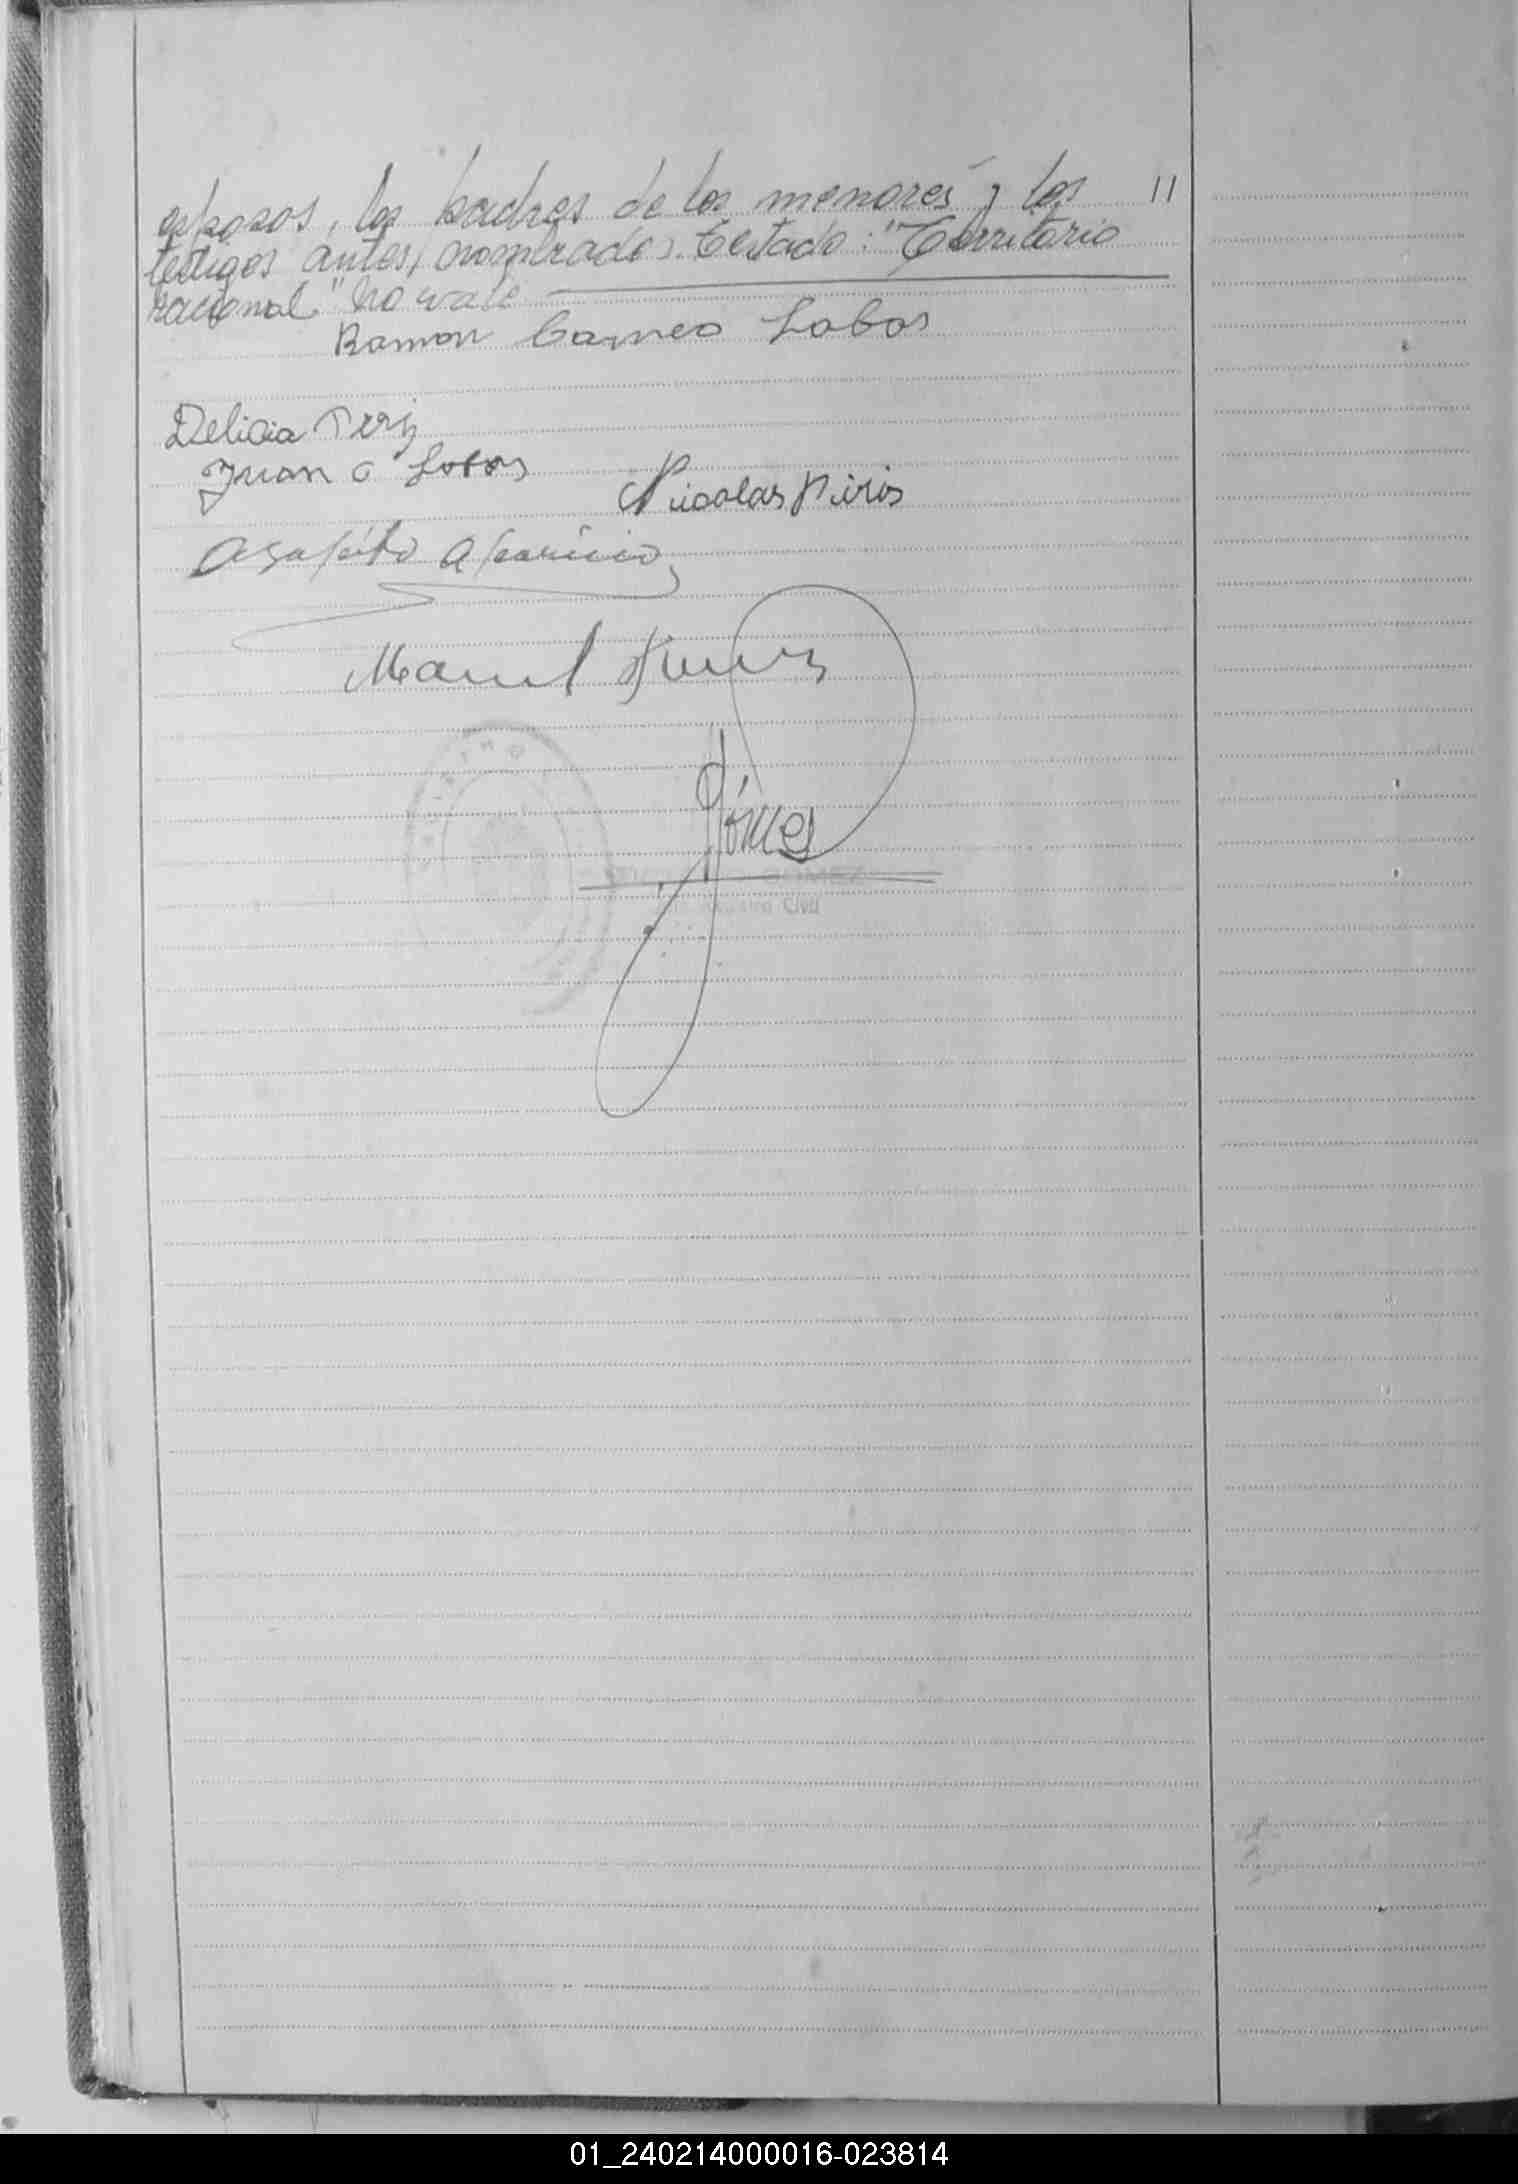 esposos, los padres de los menores y los 11
testigos antes nombrados. Testado: "Territorio
nacional" no vale
Ramon Carneo Lobos
Delicia
Juan C Lobos
Nicolas Piris
Agapito Aparicio
Manuel
Gómez
GOMEZ
Civil
01_240214000016-023814